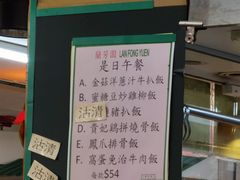 蘭芳園 LAN FONG YUEN
是日午餐
A. 金菇洋蔥汁牛扒飯
B. 蜜糖豆炒雞柳飯
沽清 豬扒飯
D. 貴妃鷄拼燒骨飯
E. 鳳爪排骨飯
F. 窩蛋免治牛肉飯
每款$54
沽清
沽清